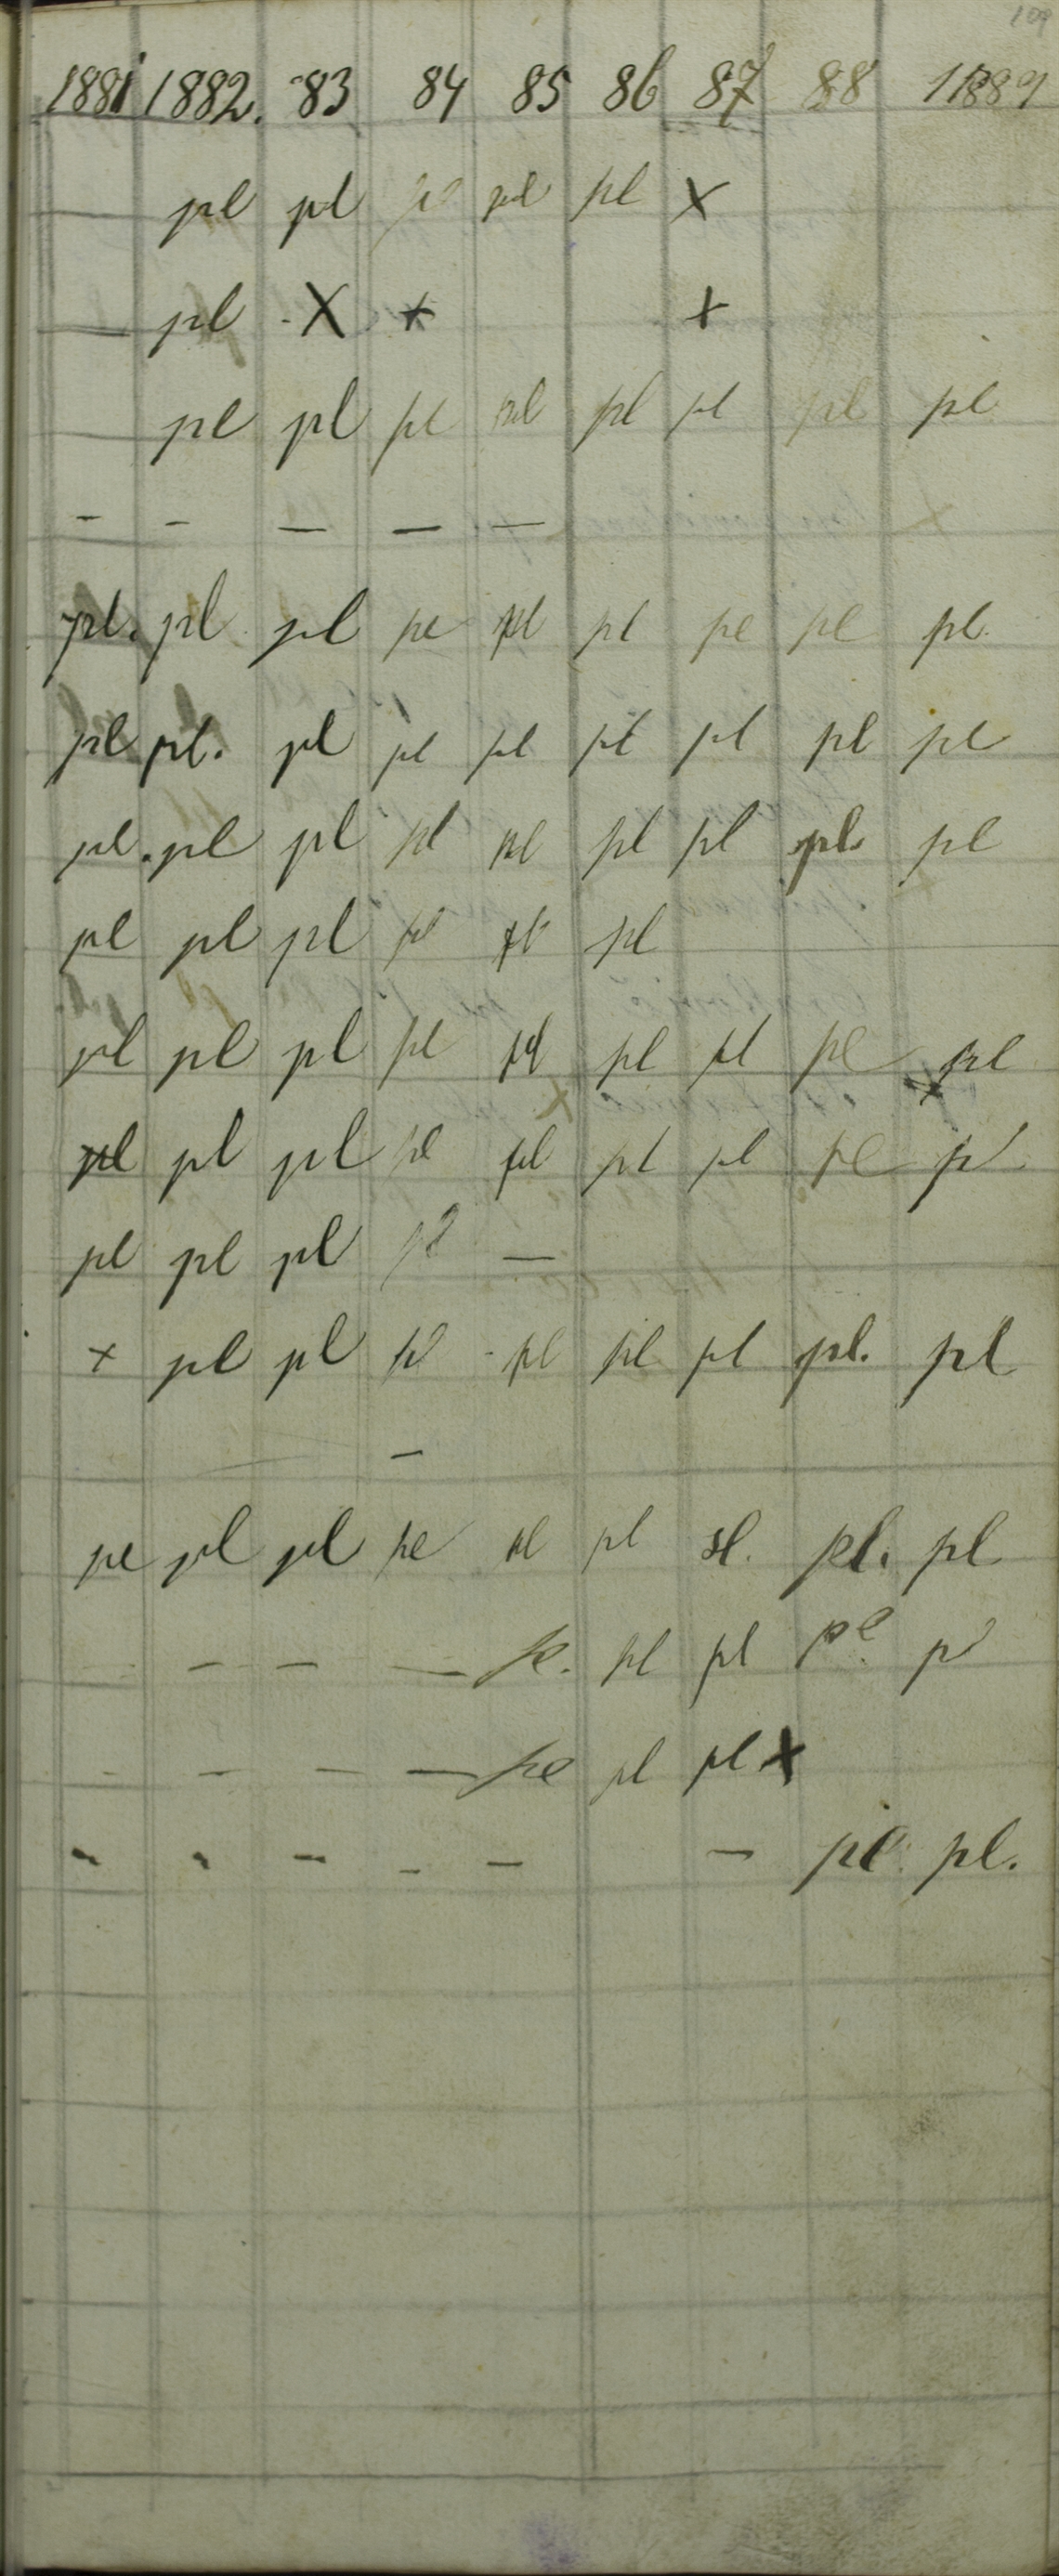 109
1881 1882. 83 84 85 86 87 88 1889
pl pl pl pl pl X
— pl X + +
pl pl pl pl pl pl pl pl
- - — — —
pl. pl pl pl pl pl pl pl pl.
pl pl. pl pl pl pl pl pl pl
pl. pl pl pl pl pl pl pl. pl
pl pl pl pl pl pl
pl pl pl pl pl pl pl pl pl
pl pl pl pl pl pl pl pl pl
pl pl pl pl —
+ pl pl pl pl pl pl pl. pl
—
pl pl pl pl pl pl sl. pl. pl
— — — pl. pl pl pl. pl
- — — — pl pl pl X
- - — - — — pl. pl.